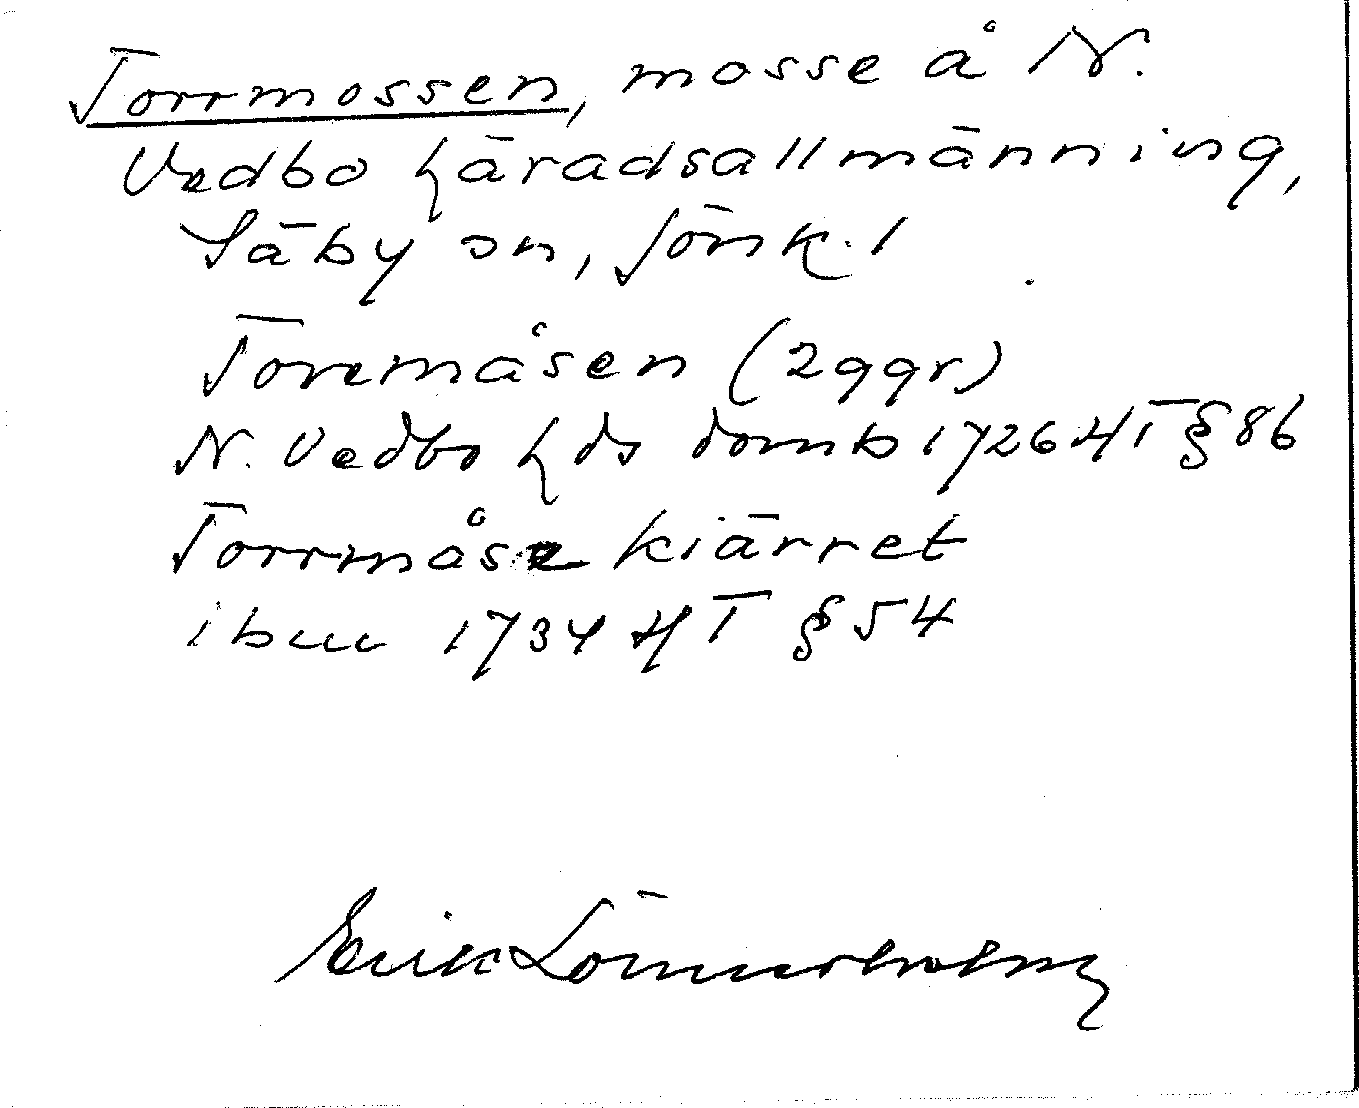 Torrmossen, mosse å N.
Vedbo häradsallmänning,
Säby sn, Jönk. l
Torremåsen (2 ggr)
N. Vedbo hds domb 1726 HT § 86
Torrmåse kiärret
ibm 1734 HT § 54
Erik Lönnerholm